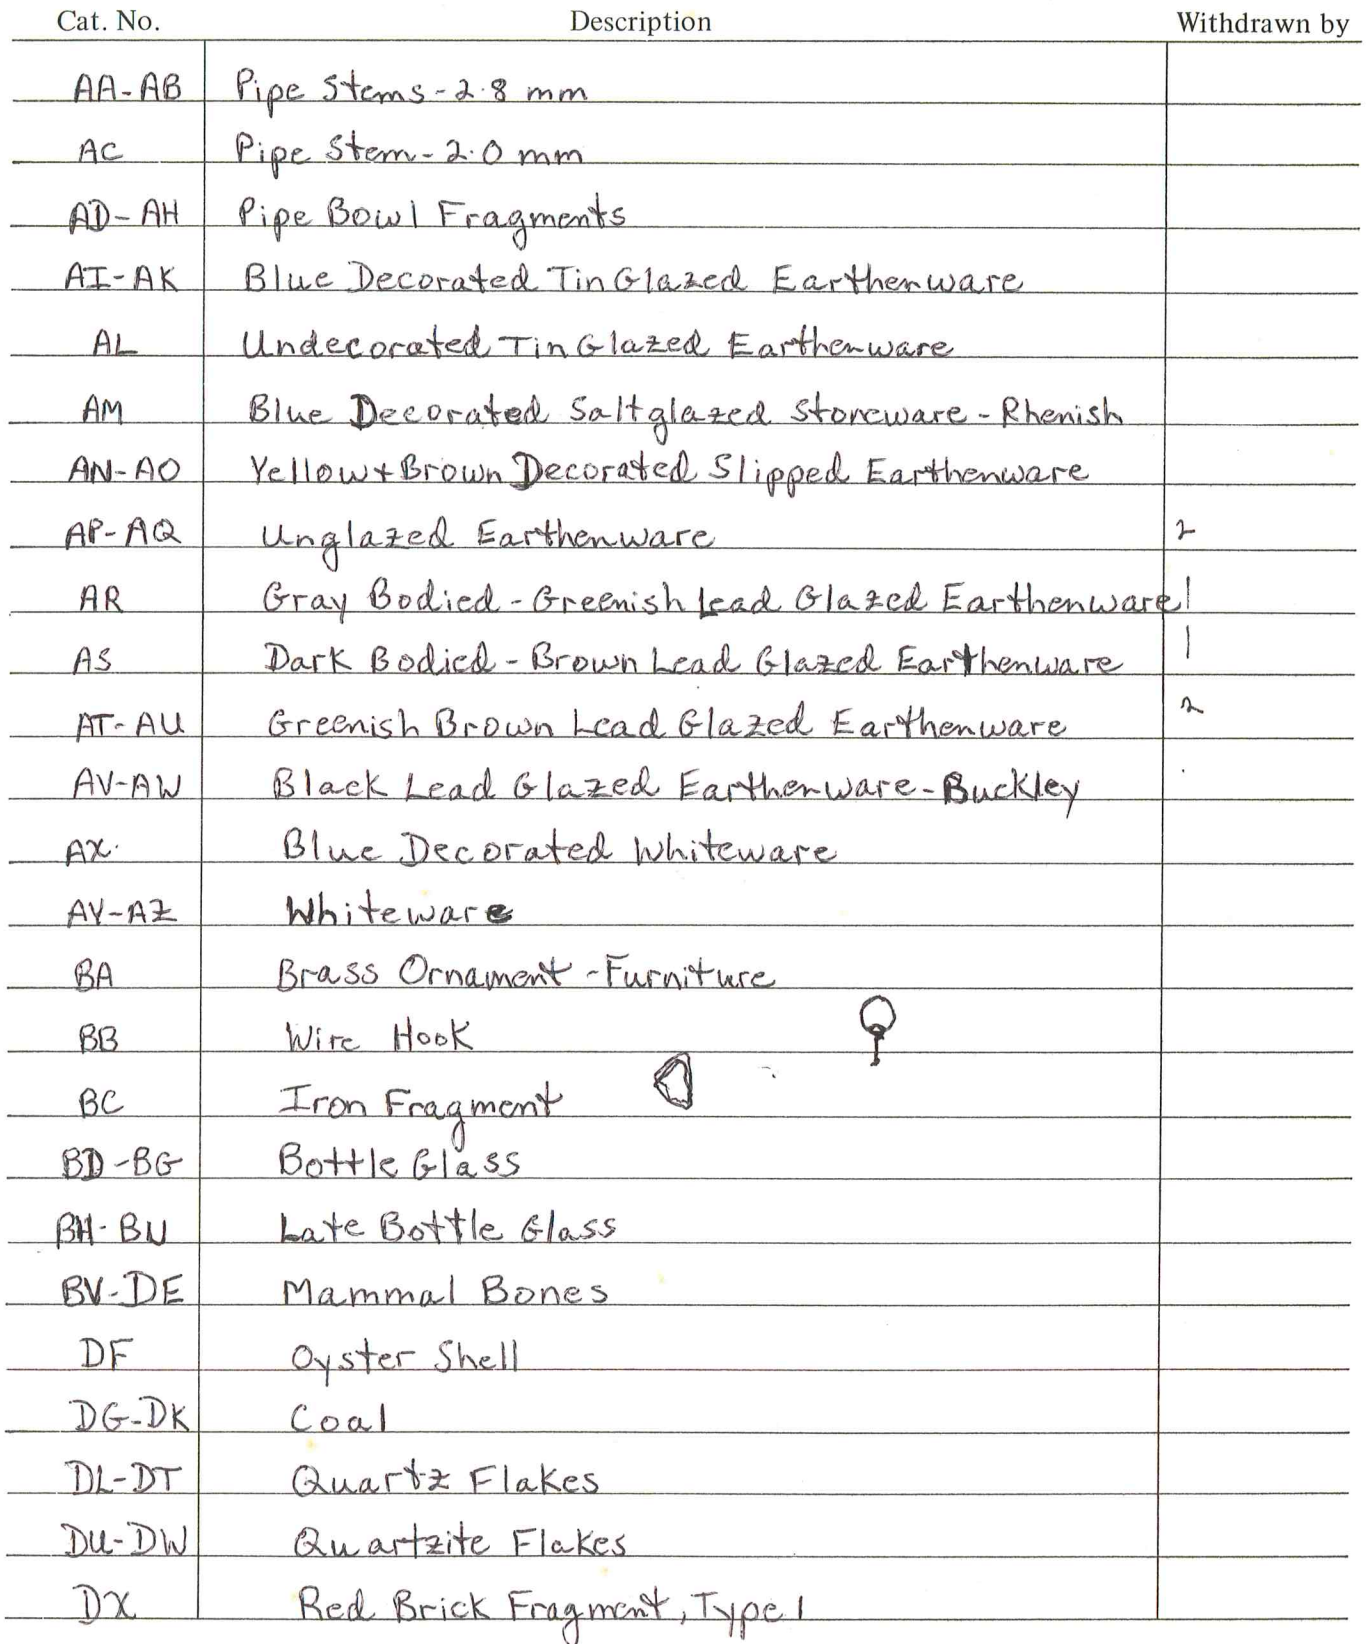 Cat. No. Description Withdrawn by
AA-AB Pipe Stems-2.8 mm
AC Pipe Stem-2.0 mm
AD-AH Pipe Bowl Fragments
AI-AK Blue Decorated Tin Glazed Earthenware
AL Undecorated Tin Glazed Earthenware
AM Blue Decorated Saltglazed Stoneware-Rhenish
AN-AO Yellow+Brown Decorated Slipped Earthenware
AP-AQ Unglazed Earthenware 2
AR Gray Bodied-Greenish Lead Glazed Earthenware 1
AS Dark Bodied-Brown Lead Glazed Earthenware 1
AT-AU Greenish Brown Lead Glazed Earthenware 2
AV-AW Black Lead Glazed Earthenware-Buckley
AX Blue Decorated Whiteware
AY-AZ Whiteware
BA Brass Ornament-Furniture
BB Wire Hook
BC Iron Fragment
BD-BG Bottle Glass
BH-BU Late Bottle Glass
BV-DE Mammal Bones
DF Oyster Shell
DG-DK Coal
DL-DT Quartz Flakes
DU-DW Quartzite Flakes
DX Red Brick Fragment, Type 1